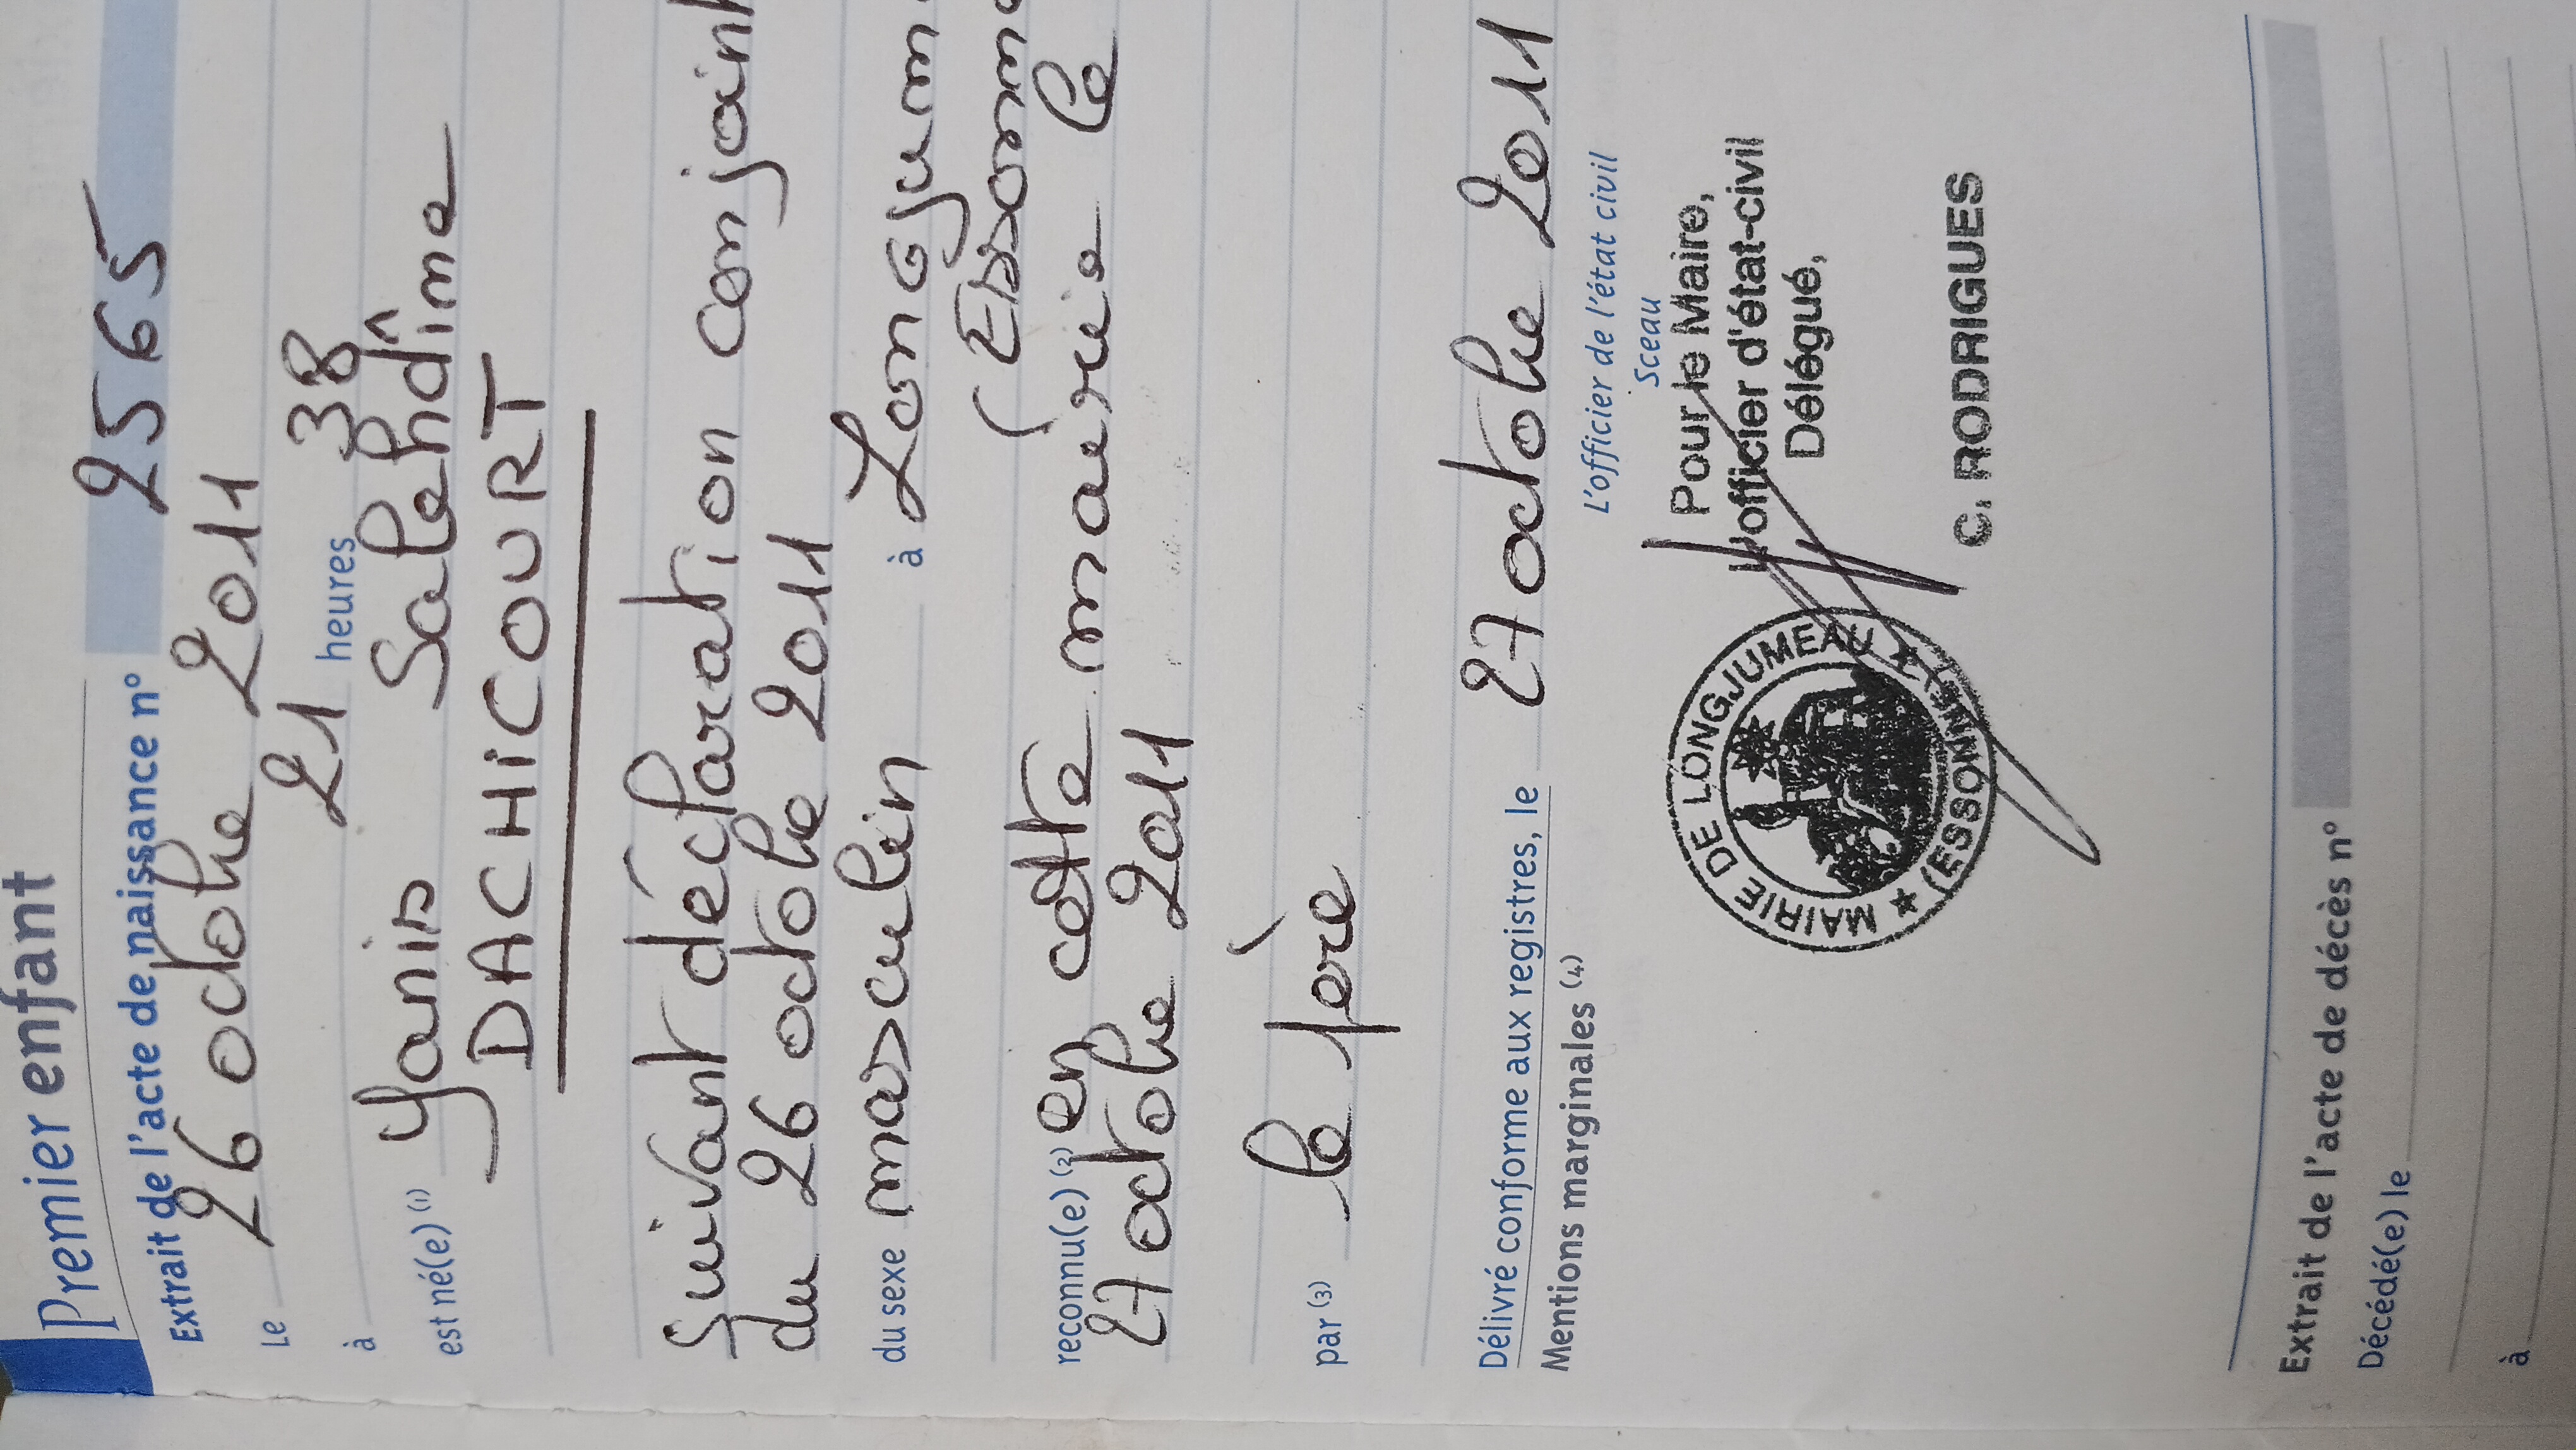 Premier enfant
Extrait de l'acte de naissance n° 2565
Le 26 octobre 2011
à 21 heures 38
est né(e) (1) Yanis Salehdîne
DACHICOURT
Suivant déclaration conjoint
du 26 octobre 2011
du sexe masculin à Longjum
(Essonne
reconnu(e) (2) en cette mairie le
27 octobre 2011
par (3) le père
Délivré conforme aux registres, le 27 octobre 2011
Mentions marginales (4)
L'officier de l'état civil
Sceau
Pour le Maire,
L'officier d'état-civil
Délégué,
C. RODRIGUES
MAIRIE DE LONGJUMEAU
(ESSONNE)
Extrait de l'acte de décès n°
Décédé(e) le
à